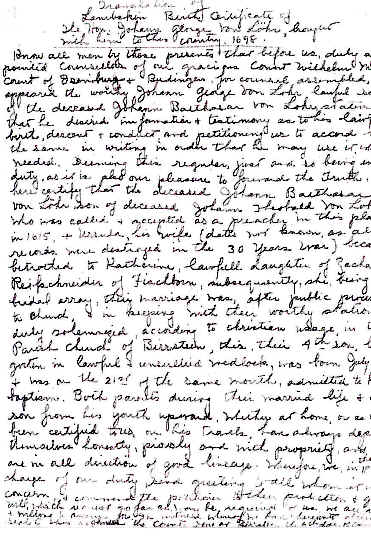 Translation of
Birth Certificate of
The Hon. Johann George Von Löhr, brought
with him to this Country, 1695.
Know all men by these presents that before us, duly a
pointed Counsellors of our gracious Count Wilhelm M
Count of Isenburg & Budingen, for counsel assembled,
appeared the worthy Johann George Von Löhr lawful so
of the deceased Johann Balthasar Von Löhr, statin
that he desired information & testimony as to his law
birth, descent & conduct and petitioned us to accord
the same in writing in order that he may use it, w
needed. Deeming this regular, just and so being ou
duty, as it is also our pleasure to the truth.
here certify that the deceased Johann Balthasar
von Löhr son of deceased Johann Theobald Von Löh
who was called & accepted as a preacher in this pla
in 1615, & Ursula, his wife (date not known, as al
records were destroyed in the 30 Years War) beca
betrothed to Katherine, lawfull daughter of Zacha
Reifschneider of Fischborn, subsequently, she, being
bridal array, their marriage was, after public
to Church, in keeping with their worthy station
duly solemnized according to christian usage, in t
Parish Church of Birstein, this, their 4th son, b
gotten in lawful & unsullied wedlock, was born July
& was on the 21st of the same month, admitted to h
baptism. Both parents during their married life &
son from his youth upward, whether at home, or as
been certified to us, on his travels, have always de
themselves honestly, piously and with propriety, and
are in all direction of good lineage. Therefore, we, in
charge of our duty send greeting to all whom it m
concern, & commend the petitioner to their protection &